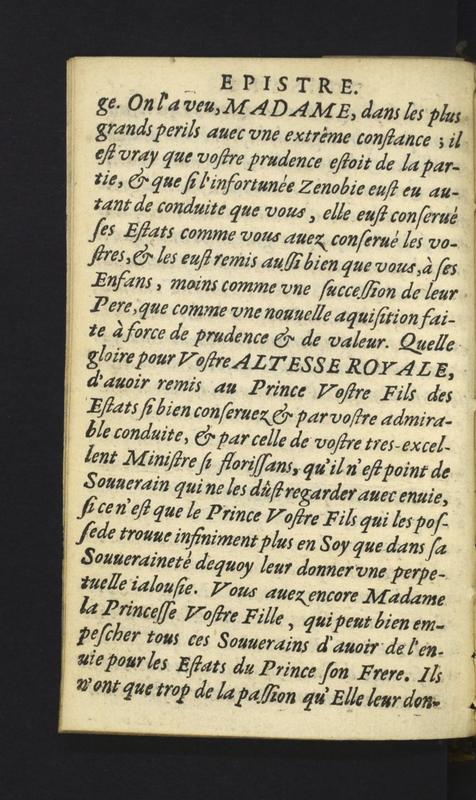 EPISTRE.
ge. On l'a veu, MADAME, dans les plus
grands perils auec vne extrême constance ; il
est vray que vostre prudence estoit de la par-
tie, & que si l'infortunée Zenobie eust eu au-
tant de conduite que vous, elle eust conserué
ses Estats comme vous auez conserué les vo-
stres, & les eust remis aussi bien que vous, à ses
Enfans, moins comme vne succession de leur
Pere, que comme vne nouuelle aquisition fai-
te à force de prudence & de valeur. Quelle
gloire pour Vostre ALTESSE ROYALE,
d'auoir remis au Prince Vostre Fils des
Estats si bien conseruez & par vostre admira-
ble conduite, & par celle de vostre tres-excel-
lent Ministre si florissans, qu'il n'est point de
Souuerain qui ne les dûst regarder auec enuie,
si ce n'est que le Prince Vostre Fils qui les pos-
sede trouue infiniment plus en Soy que dans sa
Souueraineté dequoy leur donner vne perpe-
tuelle ialousie. Vous auez encore Madame
la Princesse Vostre Fille, qui peut bien em-
pescher tous ces Souuerains d'auoir de l'en-
uie pour les Estats du Prince son Frere. Ils
n'ont que trop de la passion qu'Elle leur don-